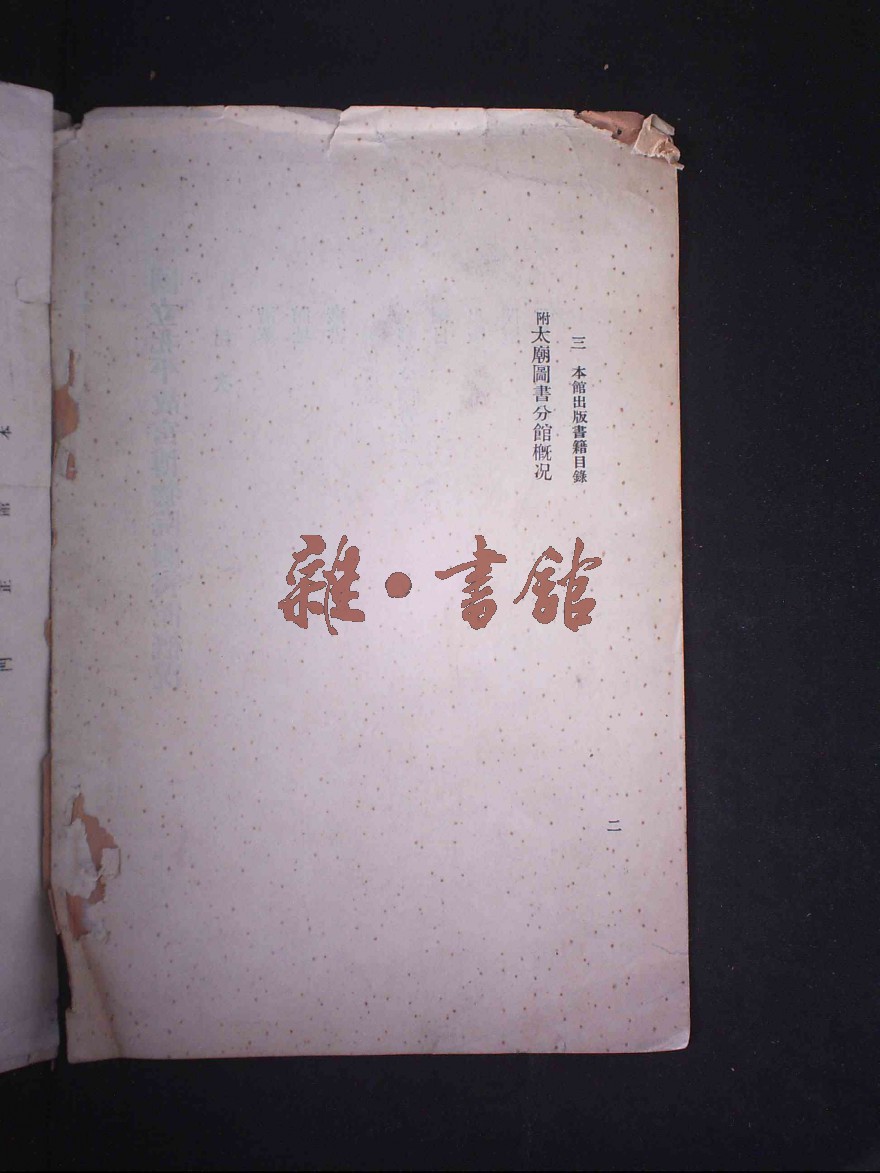 三 本館出版書籍目錄
附太廟圖書分館概况
二
雜·書館